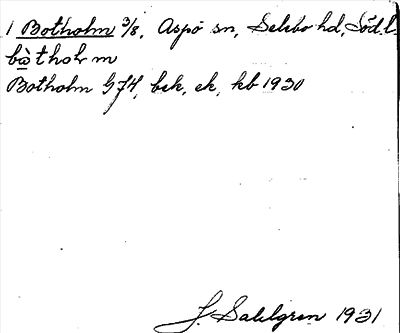 1 Botholm 3/8, Aspö sn, Selebo hd, Söd. l.
bòtholm
Botholm G74, bek, ek, kb 1930
J. Sahlgren 1931